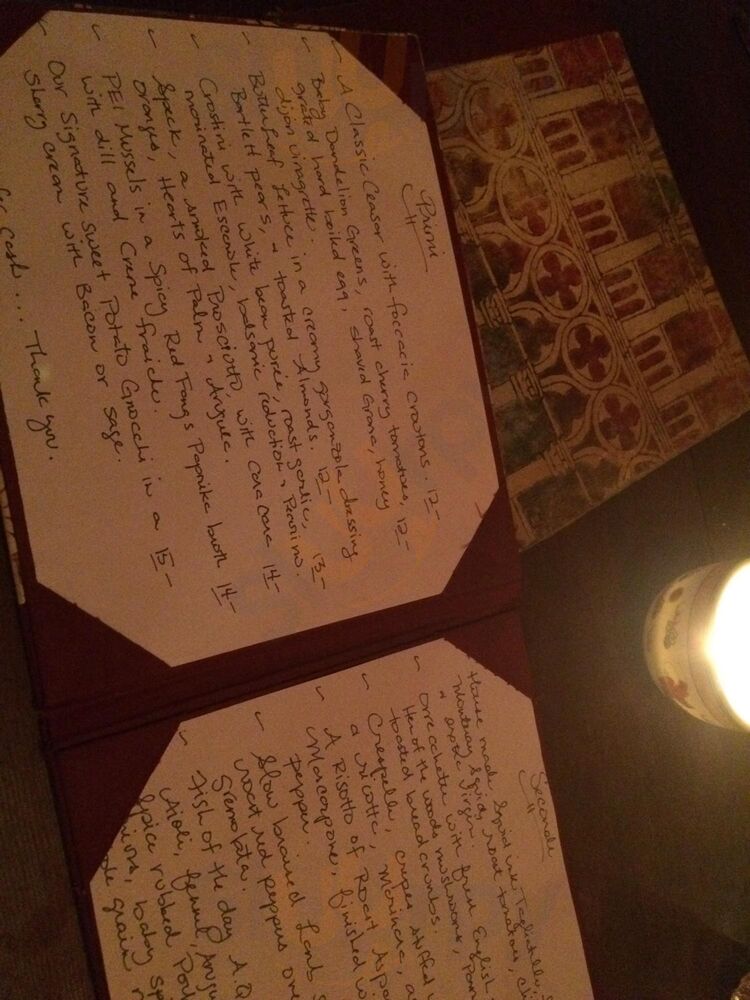 Primi
A Classic Ceasar with foccacia croutons. 12-
Baby Dandelion Greens, roast cherry tomatoes,
grated hard boiled egg, shaved Grana, honey
dijon vinagrette. 12-
Butterleaf Lettuce in a creamy gorgonzola dressing
Bartlett pears, & toasted Almonds. 12-
Crostini with white bean purée, roast garlic,
marinated Escarole, balsamic reduction & Pecorino. 13-
Speck, a smoked Prosciutto, with cara cara
oranges, Hearts of Palm & Arugula. 14-
PEI Mussels in a Spicy Red Fangs Paprika broth
with dill and Creme fraiche. 14-
Our Signature Sweet Potato Gnocchi in a
Sherry cream with Bacon or sage. 15-
for Cash.... Thank you.
Secondi
House made Squid ink Tagliatelle,
Monterey Squid, roast tomatoes,
& extra virgin
Orrecchette with fresh English
Hen of the woods mushrooms,
toasted bread crumbs.
Crespelle, crepes stuffed
ricotta, Marinara,
A Risotto of Roast
Marscapone, finished
pepper.
Slow braised Lamb
roast red peppers
Gremolata.
Fish of the day A.Q
Aioli, fennel,
Spice rubbed
baby
grain